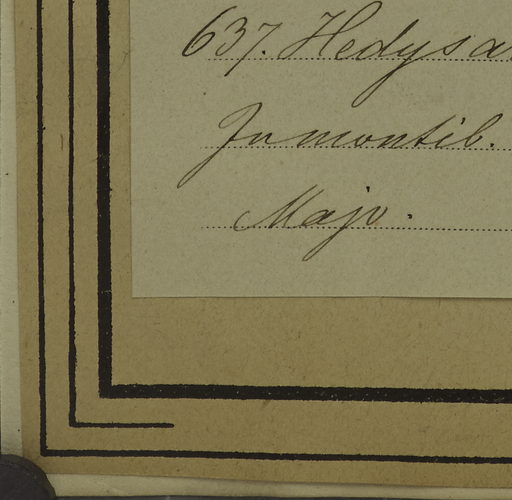 637. Hedysa
In montib.
Majo.